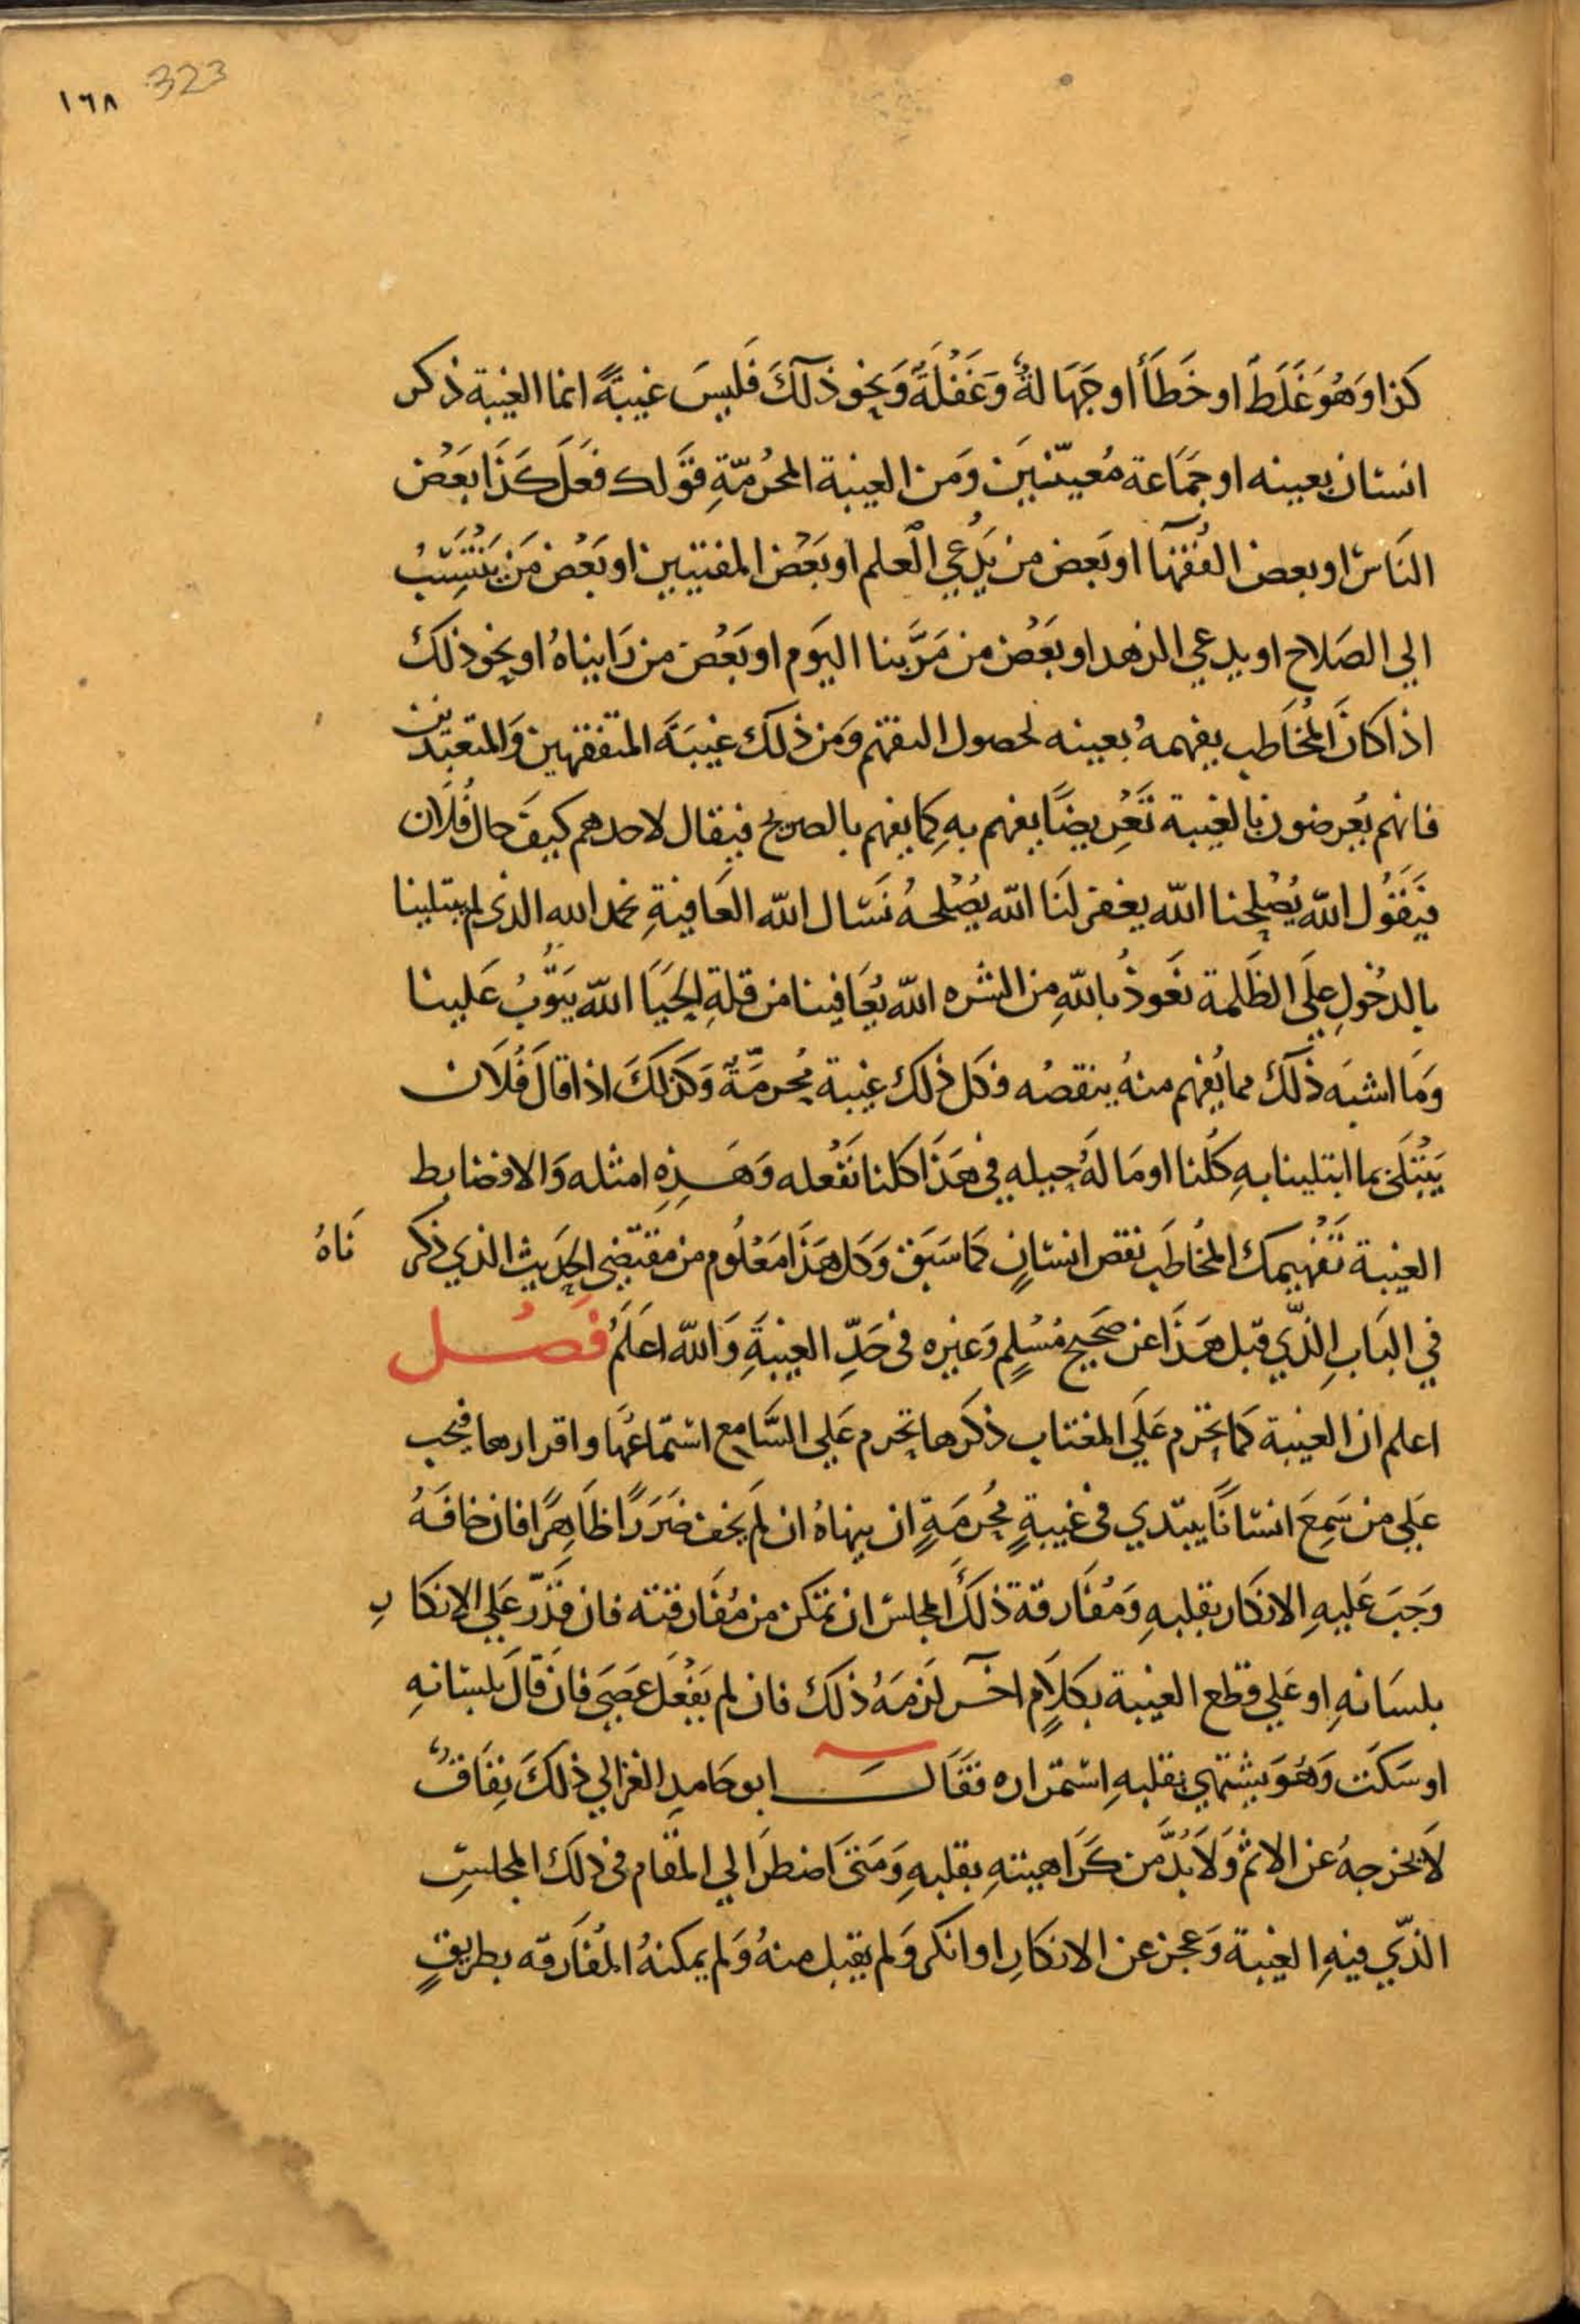 ١٦٨ 323
كذا وَهُوَ غَلَطٌ او خَطَأ أو جَهَالةٌ وَغَفْلَةً وَنحوذلكَ فَليسَ غيبَةً انما الغيبة ذكر
انسَان بعينه او جمَاعة مُعيّنينَ وَمن الغيبة المحرُمّةِ قوَلك فعَل كَذَا بَعْض
النَاسِ او بعض الفُقهَآ او بَعض من يَدعي الْعلم او بَعْض المفتيين او بَعْض مَن يَنْتَسِبُ
الي الصَلاح او يدعي الزهد او بَعْض من مَرَّبنا اليَوم او بَعْض من رَايناهُ او نحو ذلكَ
اذا كانَ المُخَاطب يفهمهُ بعينه لحصول التفهم وَمن ذلكَ غيبَةَ المتفقهين وَالمتعبّدين
فانهم يُعرضون بالغيبة تَعْرِيضًا يفهم بهِ كما يفهم بالصريح فيقال لاحدهم كيفَ حال فُلَان
فيَقَول اللّه يُصْلِحنا اللّه يغفر لنَا اللّه يصْلحهُ نَسَال اللّه العَافيةِ نحمد الله الذي لم يبتلينا
بالدخُولِ علَى الظَلمة نَعَوذُ باللّهِ من الشره اللّه يُعَافينا من قلةِ الحَيَا اللّه يَتَوُبُ عَلينا
وَمَا اشبَه ذلكَ مما يُفهم منهُ ينقصُه فكل ذلك غيبة مُحرمَّةٌ وَكذلكَ اذا قالَ فُلَان
يَبْتَلَى بما ابتلينا بهِ كلُنا او مَا لَهُ حيله في هَذَا كلنا نَفْعله وَهَذِهِ امثله وَالا فضابط
الغيبة تَفْهيمك المُخاطَب نقص انسَانٍ كما سَبَق وَكل هَذَا مَعْلُوم من مقتَضِي الحَديث الذي ذكر نَاهُ
في البَابِ الذّي قبل هَذَا عن صَحيح مُسْلِم وَغيره في حَدِّ الغيبَةِ وَاللّه اعَلَمُ فَصُل
اعلم ان الغيبة كما تحَرم علَي المغتاب ذكَرها تحرم عَلي السَّامع استمَاعُهَا واقرارها فيجب
عَلي من سَمِعَ انسَانًا يبتدي في غيبةٍ مُحُرمَةٍ ان ينهاهُ ان لَم يخف ضَرَرًا ظَاهِرًا فان خافَهُ
وَجبَ عَليهِ الانكَار بقلبهِ وَمُفَارقة ذلكَ المجلس ان تمكن من مُفَارقته فان قَدّرَ عَلي الانكَا رِ
بلسَانهِ او عَلي قطع الغيبة بكلَامٍ اخَر لَزمَهُ ذلكَ فان لم يَفْعَل عَصَي فان قَالَ بلسَانهِ
او سَكَت وَهُوَ يشتهي بقلبهِ استمَراره فقَالَ ابو حَامدِ الغزالي ذلكَ نِفَاقٌ
لَا يخرجهُ عن الاثم وَلَا بُدَّ من كَرَاهيتهِ بقلبهِ وَمَتَى اضطرَ الي المقَام في ذلكَ المجلسِ
الذّي فيهِ الغيبة وَعجز عن الانكَارِ او انكر وَلم يقبل منهُ وَلم يمكنهُ المُفَارقه بطريقٍ